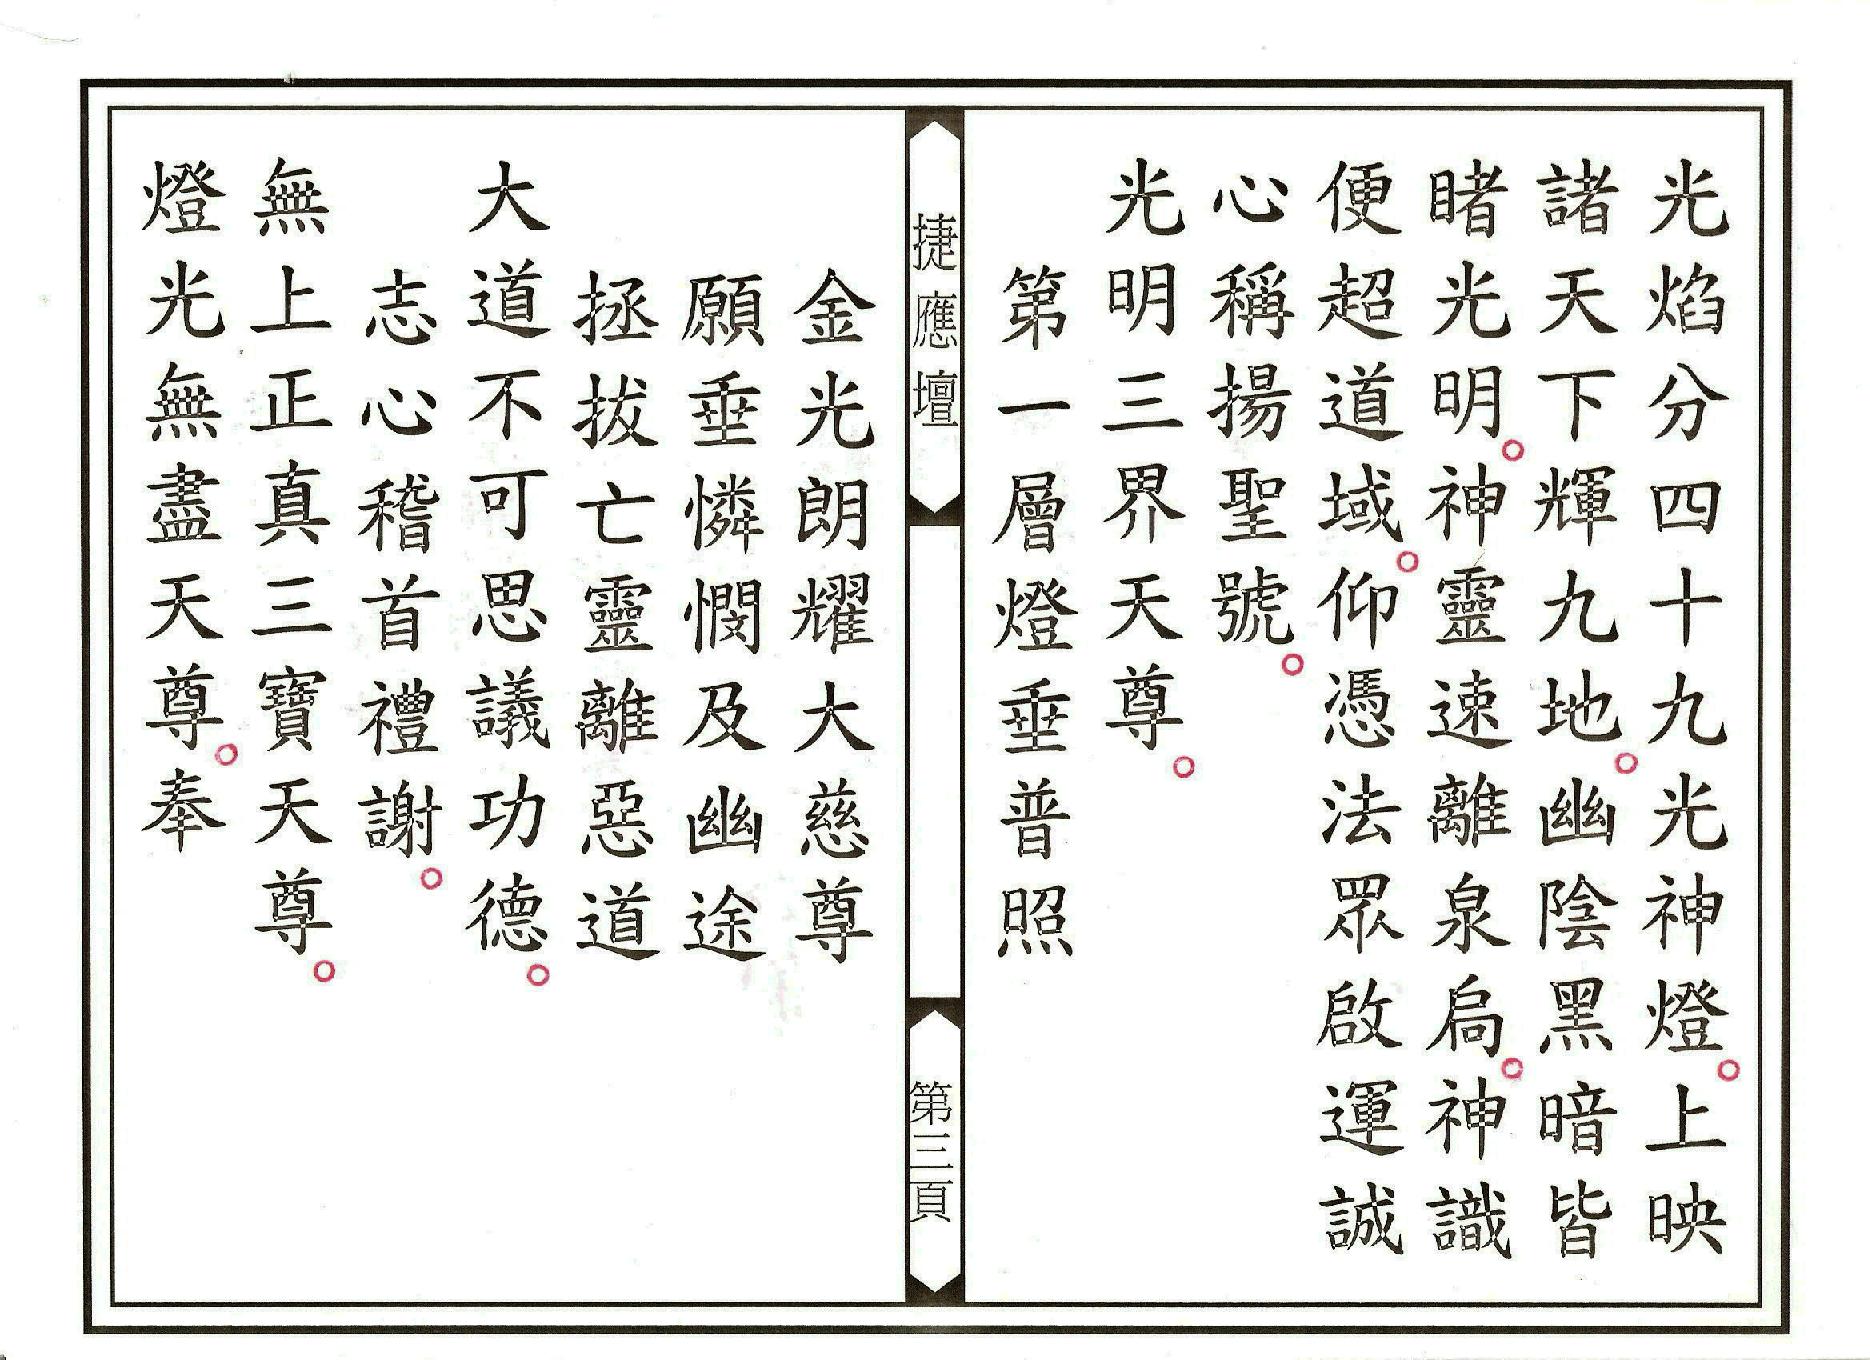 光焰分四十九光神燈。上映
諸天下輝九九地。幽陰黑暗皆
睹光明。神靈速離泉扃。神識
便超道域。仰憑法眾啟運誠
心稱揚聖號。
光明三界天尊。
第一層燈垂普照
捷應壇
第三頁
金光朗耀大慈尊
願垂憐憫及幽途
拯拔亡靈離惡道
大道不可思議功德。
志心稽首禮謝。
無上正真三寶天尊。
燈光無盡天尊。奉